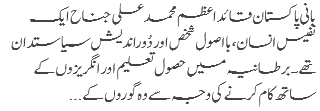 بانی پاکستان قائد اعظم محمد علی جناح ایک
نفیس انسان، بااصول شخص اور دُور اندیش سیاستدان
تھے۔ برطانیہ میں حصول تعلیم اور انگریزوں کے
ساتھ کام کرنے کی وجہ سے وہ گوروں کے...